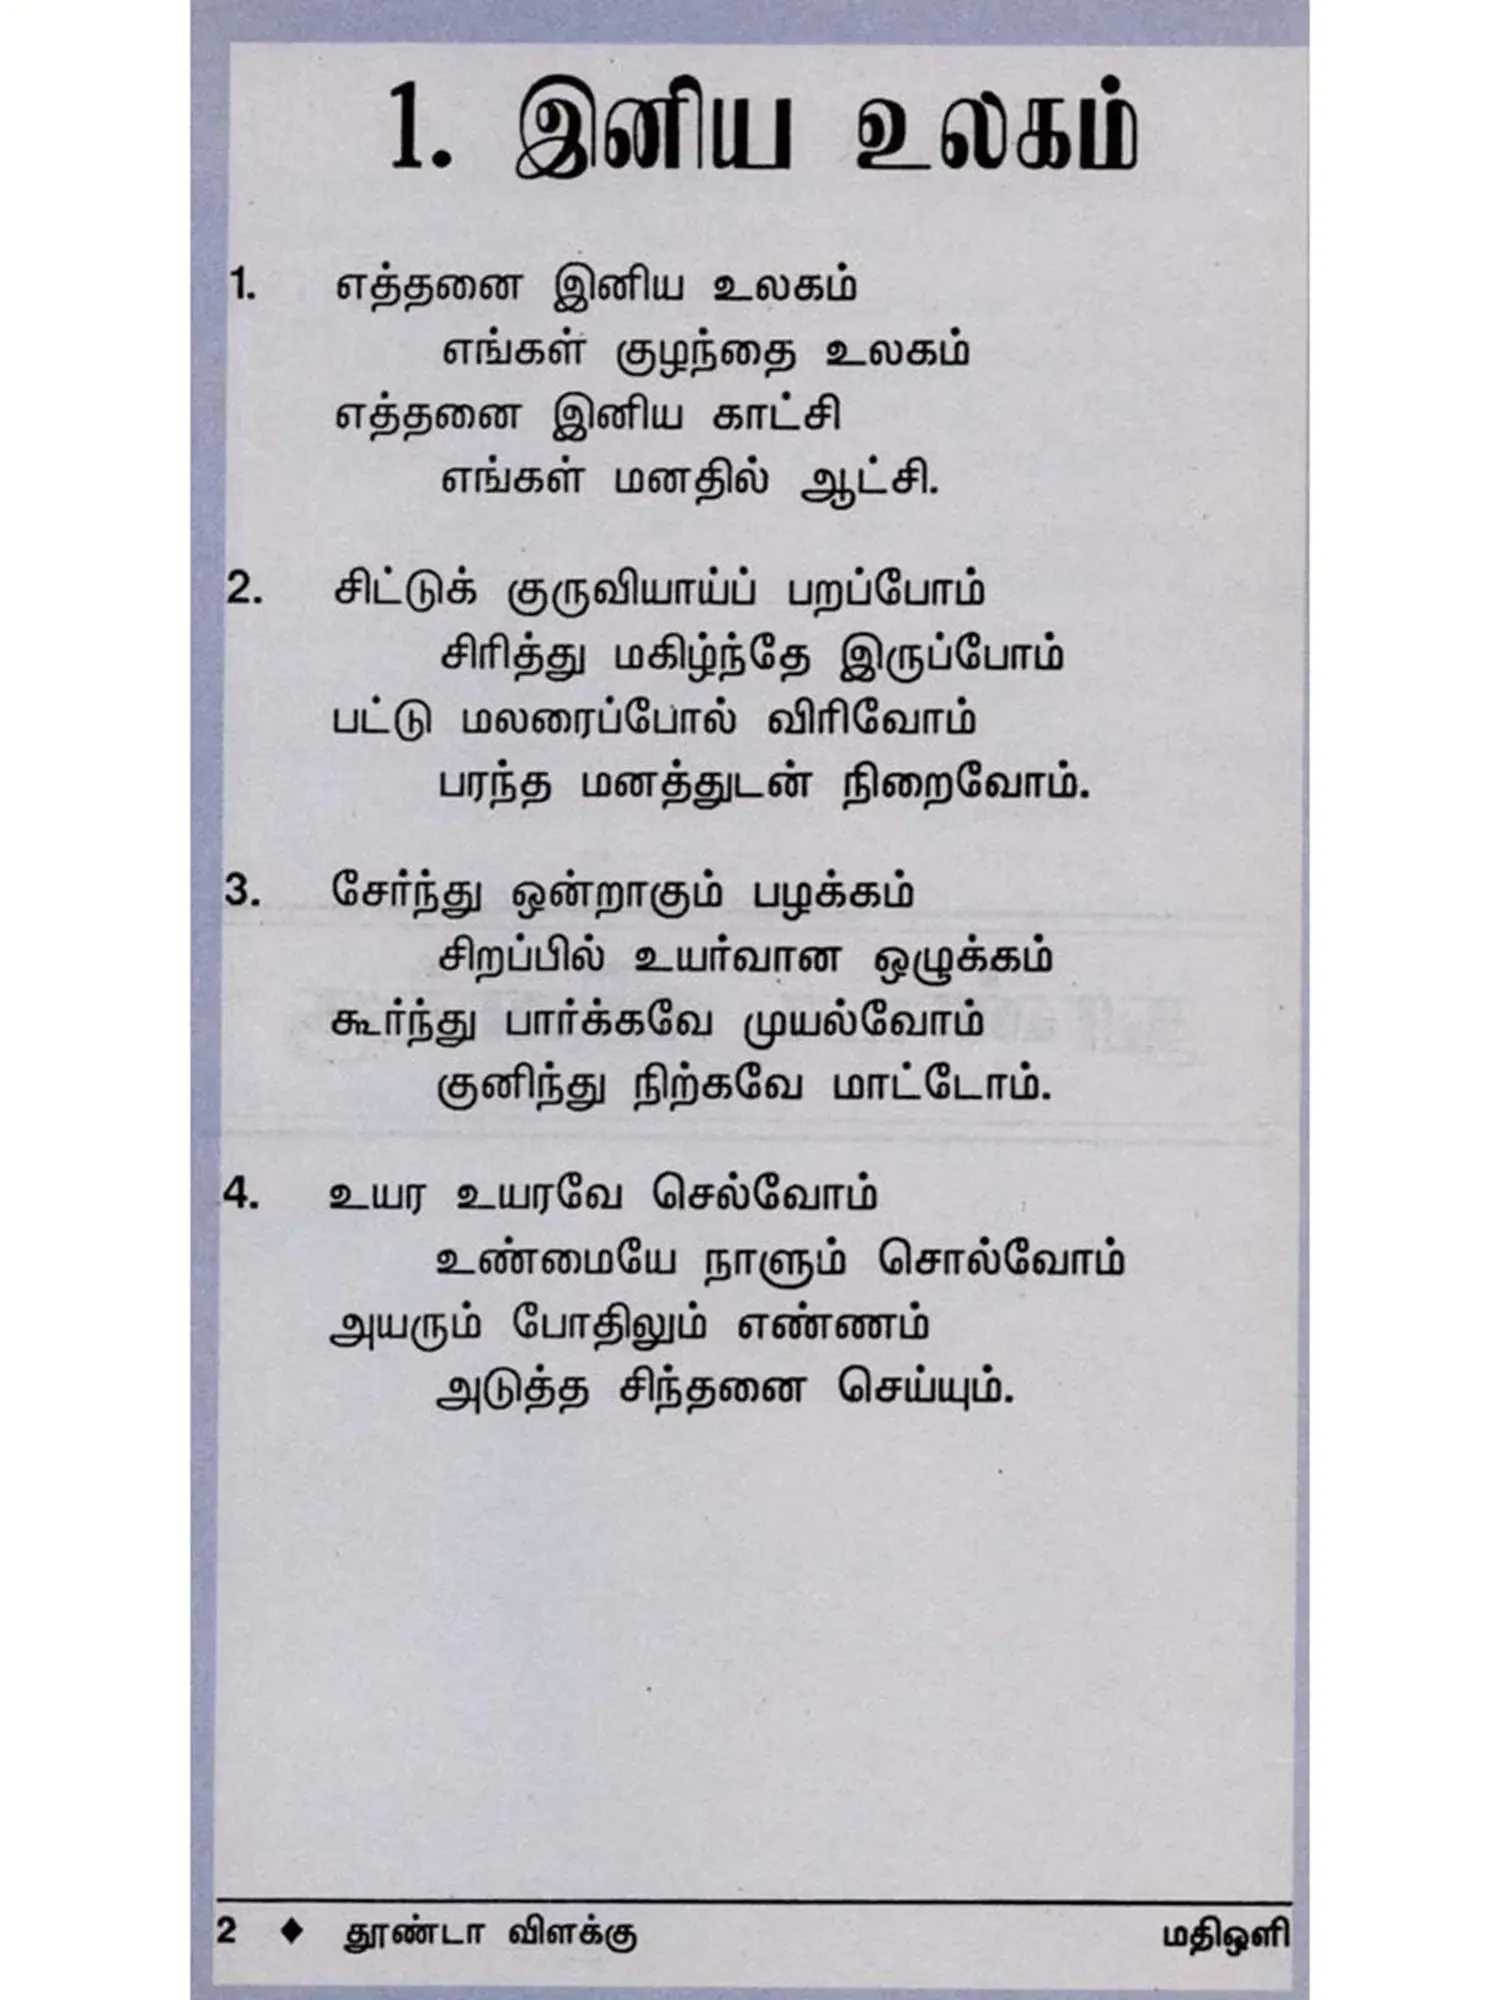 1. இனிய உலகம்
1. எத்தனை இனிய உலகம்
எங்கள் குழந்தை உலகம்
எத்தனை இனிய காட்சி
எங்கள் மனதில் ஆட்சி.
2. சிட்டுக் குருவியாய்ப் பறப்போம்
சிரித்து மகிழ்ந்தே இருப்போம்
பட்டு மலரைப்போல் விரிவோம்
பரந்த மனத்துடன் நிறைவோம்.
3. சேர்ந்து ஒன்றாகும் பழக்கம்
சிறப்பில் உயர்வான ஒழுக்கம்
கூர்ந்து பார்க்கவே முயல்வோம்
குனிந்து நிற்கவே மாட்டோம்.
4. உயர உயரவே செல்வோம்
உண்மையே நாளும் சொல்வோம்
அயரும் போதிலும் எண்ணம்
அடுத்த சிந்தனை செய்யும்.
2 ♦ தூண்டா விளக்கு மதிஒளி